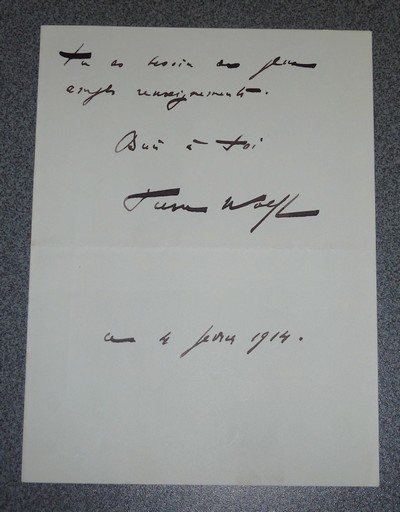 Tu as besoin de plus
amples renseignements.
Bien à toi
Pierre Wolff
ce 4 février 1914.